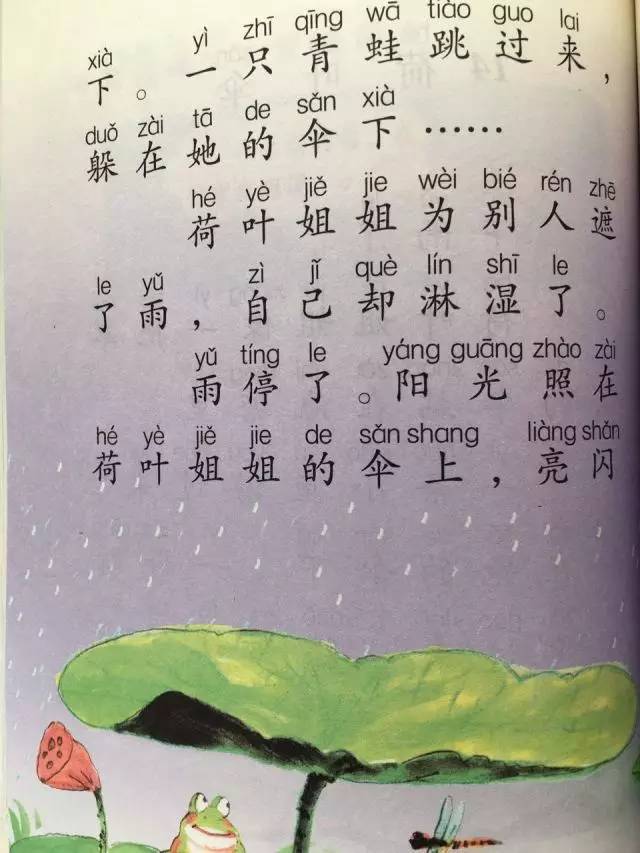 yì zhī qīng wā tiào guo lai
xià
下。一只青蛙跳过来，
duǒ zài tā de sǎn xià
躲在她的伞下……
hé yè jiě jie wèi bié rén zhē
荷叶姐姐为别人遮
le yǔ zì jǐ què lín shī le
了雨，自己却淋湿了。
yǔ tíng le yáng guāng zhào zài
雨停了。阳光照在
hé yè jiě jie de sǎn shang liàng shǎn
荷叶姐姐的伞上，亮闪